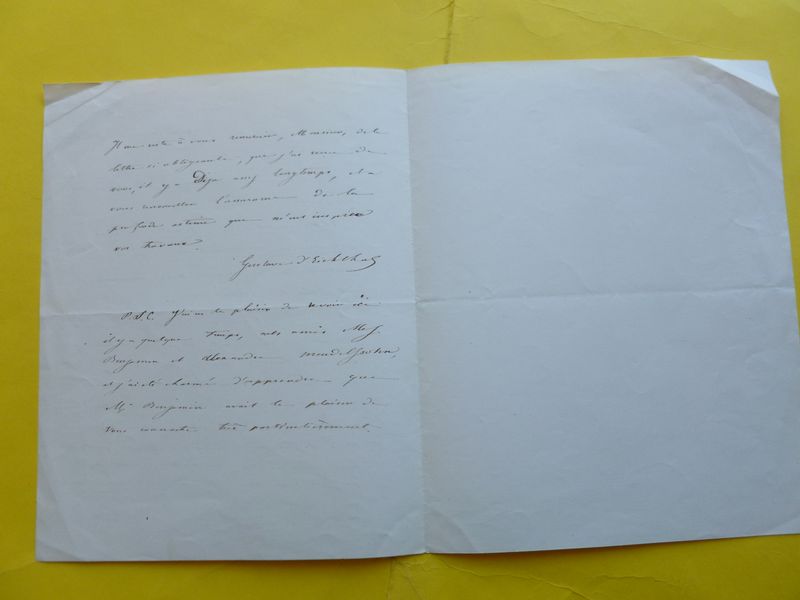 Il me reste à vous remercier, Monsieur, de la
lettre si obligeante, que j'ai reçue de
vous, il y a Déja assez longtemps, et a
vous renouveller l'assurance de la
profonde estime que m'ont inspiré
vos travaux.
Gustave d'Eichthal
P.S. J'ai eu le plaisir de revoir ici
il y a quelque temps, nos amis Mss.
Benjamin et Alexandre Mendelssohn,
et j'ai été charmé d'apprendre que
Mr Benjamin avait le plaisir de
vous connaitre très particulièrement.